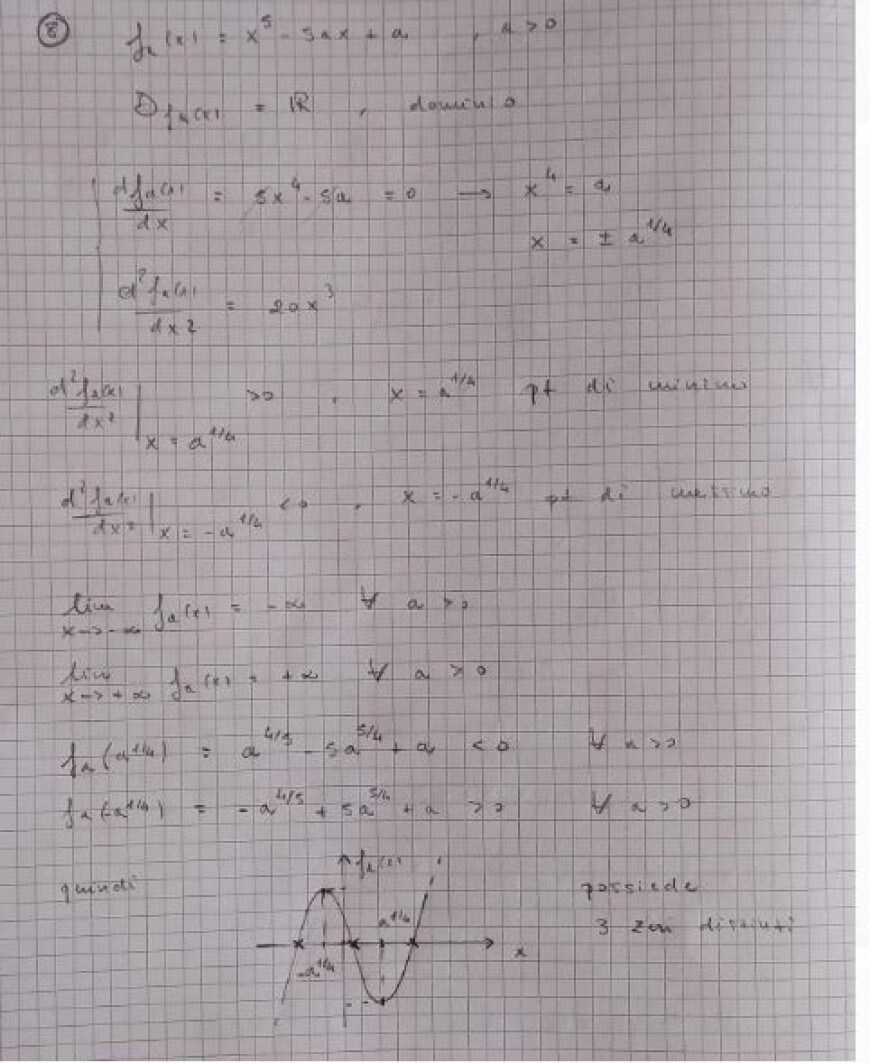 ⑧ fₐ(x) = x⁵ - 5ax + a , a > 0
D fₐ(x) = ℝ , dominio
dfₐ(x)/dx = 5x⁴ - 5a = 0 → x⁴ = a
x = ± a^1/4
d²fₐ(x)/dx² = 20x³
d²fₐ(x)/dx² | x = a^1/4 >0 , x = a^1/4 pt di minimo
d²fₐ(x)/dx² | x = -a^1/4 <0 , x = -a^1/4 pt di massimo
lim x→-∞ fₐ(x) = -∞ ∀ a >0
lim x→+∞ fₐ(x) = +∞ ∀ a > 0
fₐ(a^1/4) = a^4/5 - 5a^5/4 + a < 0 ∀ a >0
fₐ(-a^1/4) = -a^4/5 + 5a^5/4 + a >0 ∀ a >0
fₐ(x)
quindi possiede
a^1/4 3 zeri distinti
-a^1/4 x